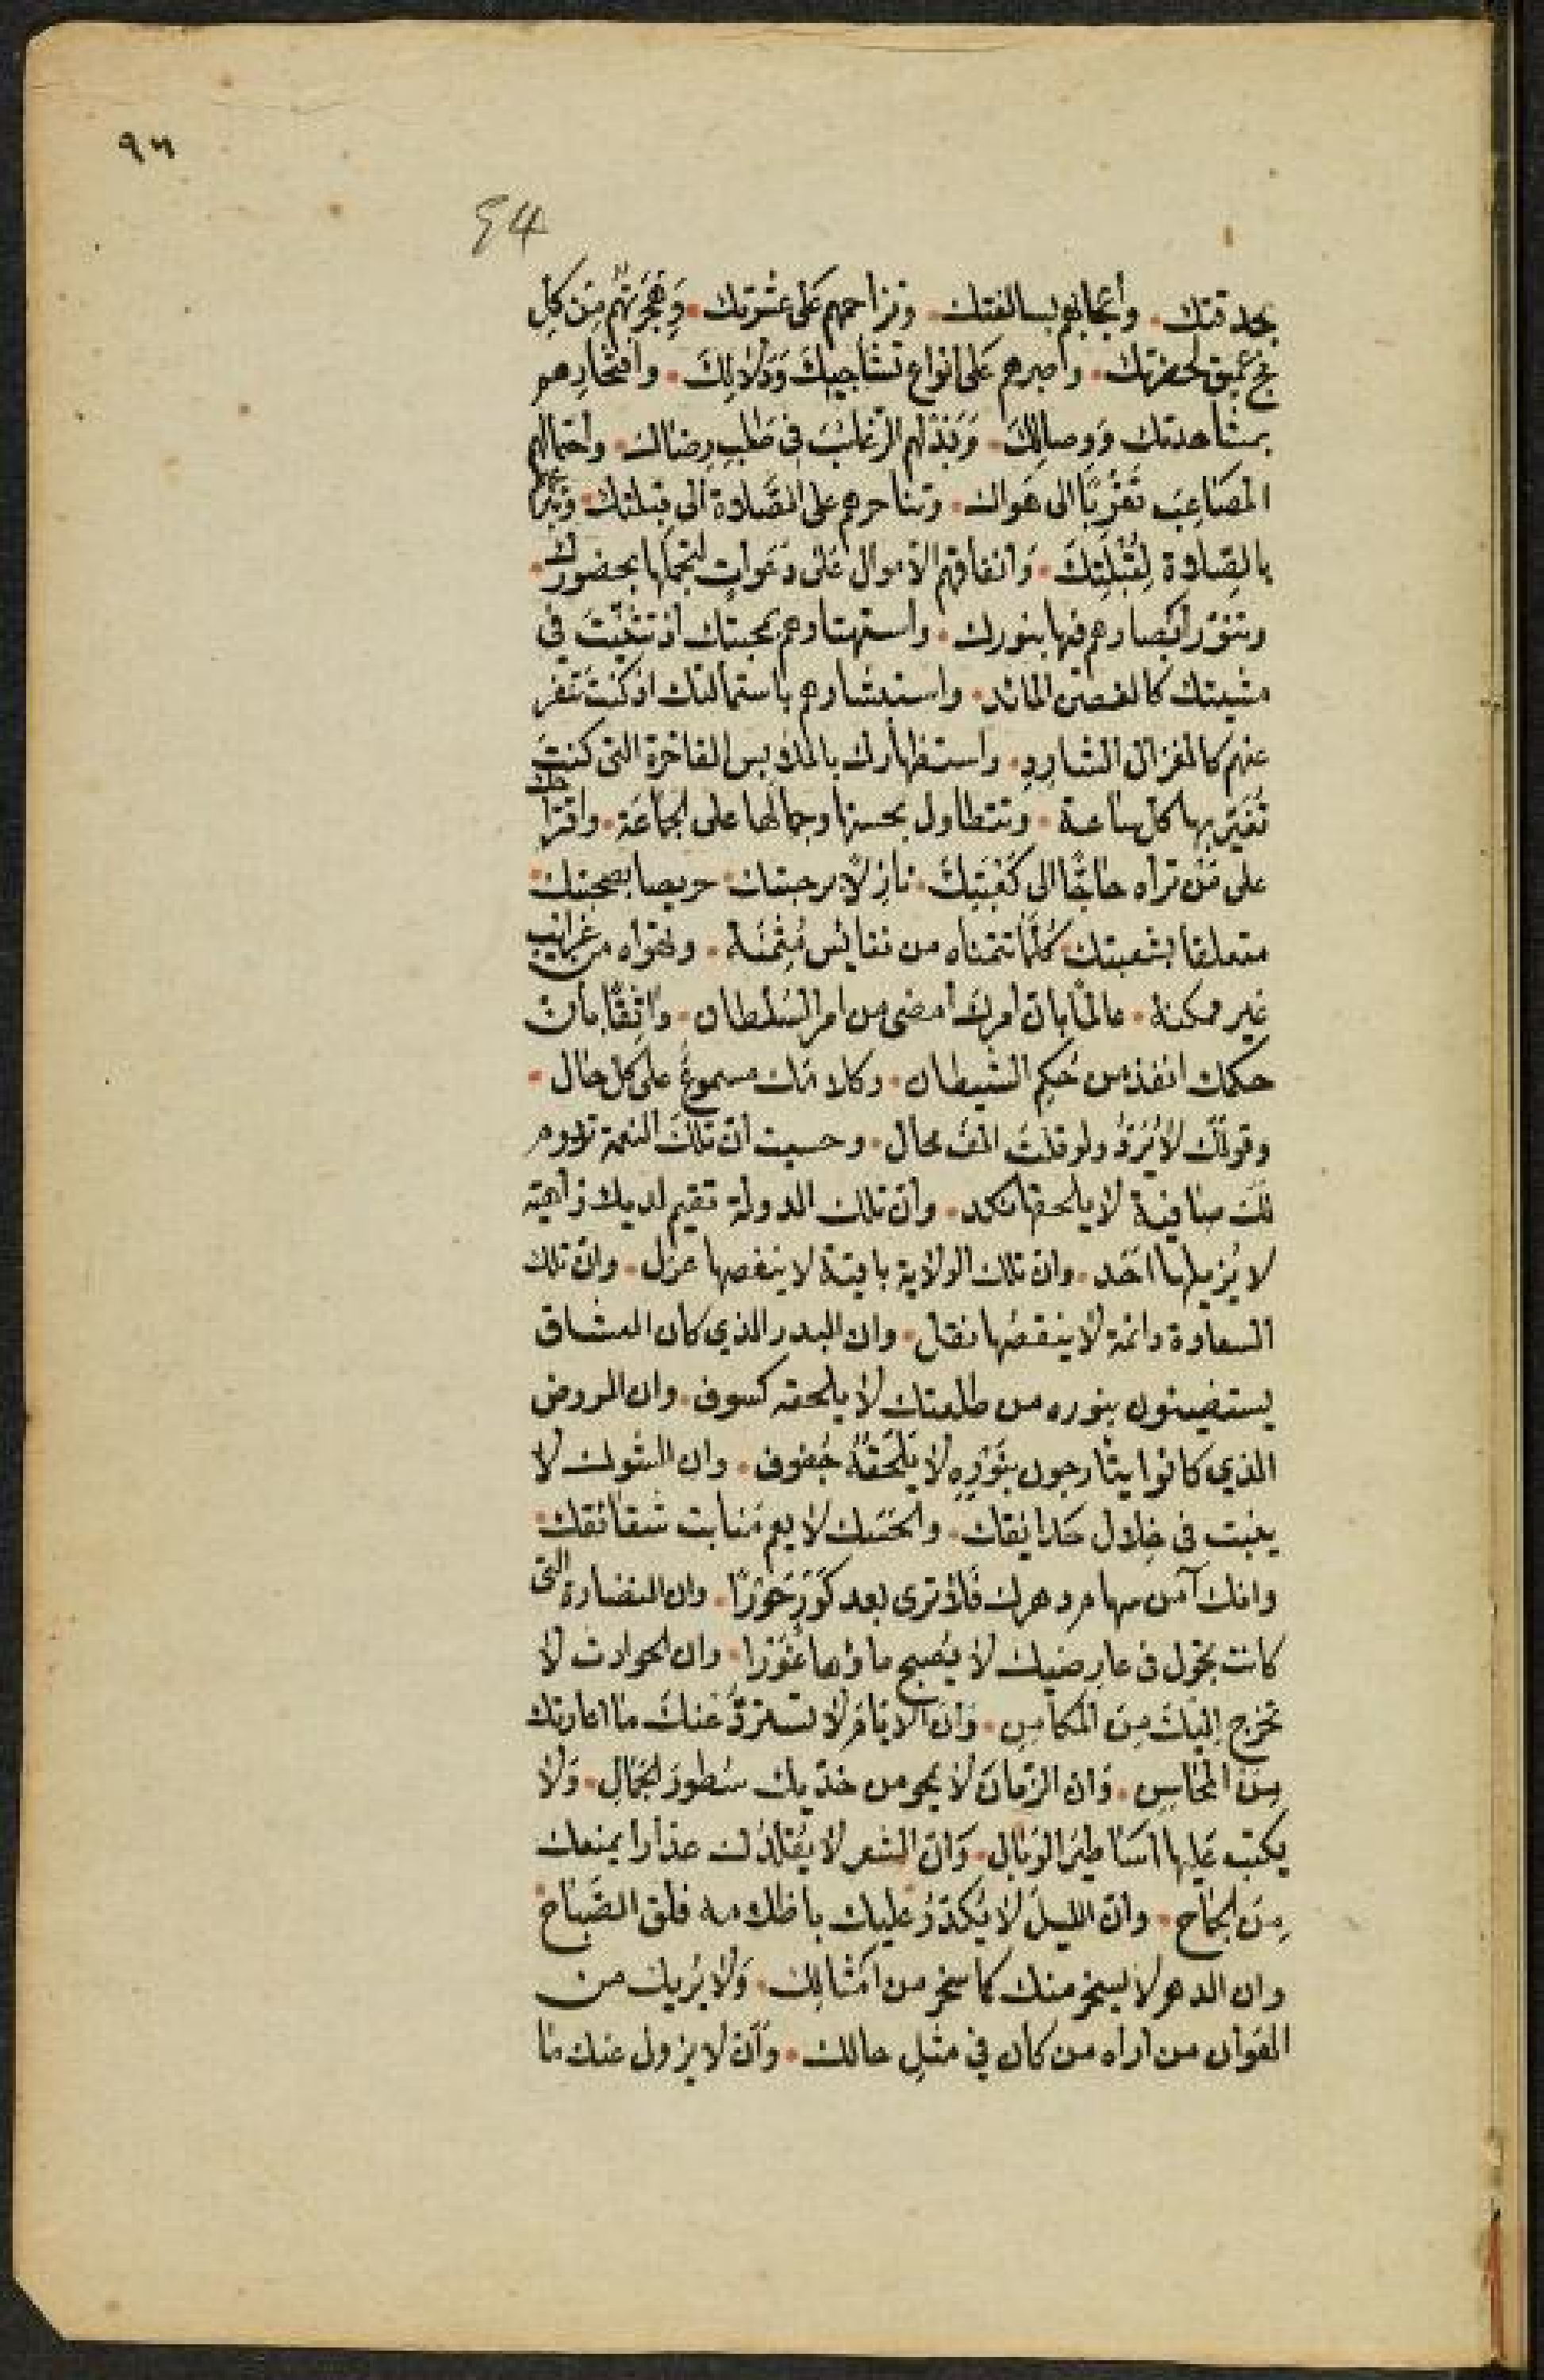 ٩٣
94
بحدقتك. وأعجابهم بسالفتك. وتزاحمهم على عشرتك. وهجرتهم من كل
فج عميق لحضرتك. وصبرهم على أنواع تشاجيك ودلالك. وافتخارهم
بمشاهدتك ووصالك. وبذلهم الرغائب في طلب رضاك. واحتمالهم
المصاعب تقربًا الى هواك. وتناحرهم على الصلاة الى قبلتك.
بالصلاة لقبلتك. وانفاقهم الأموال على دعوات لتجملها بحضورك.
وتنور أبصارهم فيها بنورك. واستهتارهم بمحبتك اذ تتثنيت في
مشيتك كالغصن المائد. واستبشارهم باستمالتك اذ كنت تنفر
عنهم كالغزال الشارد. واستظهارك بالملابس الفاخرة التي كنت
تغير بها كل ساعة. وتتطاول بحسنها وجمالها على الجماعة. واقتراحك
على من تراه حاجًّا الى كعبتك. نازلًا برحبتك. حريصا بصحبتك.
متعلقا بشعبتك. كلما تتمناه من نفائس مثمنة. وتهواه من غرائب
غير ممكنة. عالمًا بأن أمرك أمضى من امر السلطان. واثقًا بأن
حكمك انفذ من حكم الشيطان. وكلامك مسموع على كل حال.
وقولك لا يرد ولو قلت الف محال. وحسبت أن تلك النعمة تدوم
لك صافية لا يلحقها نكد. وأن تلك الدولة تقيم لديك زاهية
لا يزيلها احد. وان تلك الولاية باقية لا ينغصها عزل. وان تلك
السعادة دائمة لا ينقضها نقل. وان البدر الذي كان العشاق
يستضيئون بنوره من طلعتك لا يلحقه كسوف. وان الروض
الذي كانوا يتأرجون بنوره لا يلحقه جفوف. وان الشوك لا
ينبت في خلال حدائقك. والحسك لا يعم منابت شقائقك.
وانك آمن سهام دهرك فلا ترى بعد كور حورًا. وان النضارة التي
كانت تجول في عارضيك لا يصبح ماؤها غورا. وان الحوادث لا
تخرج اليك من المكامن. وان الايام لا تسترد عنك ما اعارتك
من المحاسن. وان الزمان لا يمحو من خديك سطور الجمال. ولا
يكتب عليها اساطير الوبال. وان الشعر لا يقلدك عذارا يمنعك
من الجماح. وان الليل لا يكدر عليك باظلامه فلق الصباح
وان الدهر لا يسخر منك كما سخر من أمثالك. ولا يريك من
الهوان من اراه من كان في مثل حالك. وأن لا يزول عنك ما